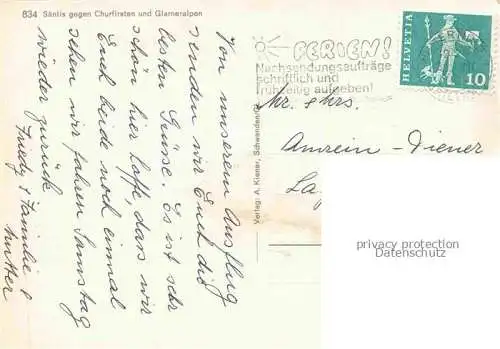 834 Säntis gegen Churfirsten und Glarneralpen
Von unserem Ausflug
senden wir Euch die
besten Grüsse. Es ist sehr
schön hier hoffe, dass wir
Euch beide noch einmal
sehen wir fahren Samstag
wieder zurück
Friedy & Familie &
Mutter
Verlag: A. Kiener, Schwanden/Gl
FERIEN!
Nachsendungsaufträge
schriftlich und
frühzeitig aufgeben!
HELVETIA
10
Mr. & Mrs.
Amrein-Diener
privacy protection
Datenschutz